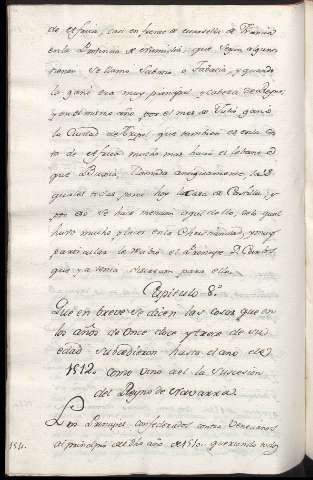 de Africa, casi en frente de
en la Provincia de Numidia, que segun algunos
tienen se llamo Sabaria o Tabacia, y quando
la gano era muy principal, y cabeza de Reyno,
y en el mismo año por el mes de Julio gano
la Ciudad de Tripol que tambien es en la cos
ta de Africa mucho mas hacia el lebante
que Buxia, llamada antiguamente, las
quales todas posee hoy la Casa de Castilla, y
por eso se hace mencion aqui dello, de lo qual
hubo mucho placer en la Christiandad, y muy
particular le recibio el Principe D. Carlos
que ya tenia discrecion para ello.
Capitulo 8.º
Que en breve se dicen las cosas que en
los años de Once doce y trece de su
edad subcedieron hasta el año de
1512. como vino a el la Succesion
del Reyno de Navarra.
Los Principes confederados contra Venecianos
al principio del dho año de 1510. queriendo todos
1510.